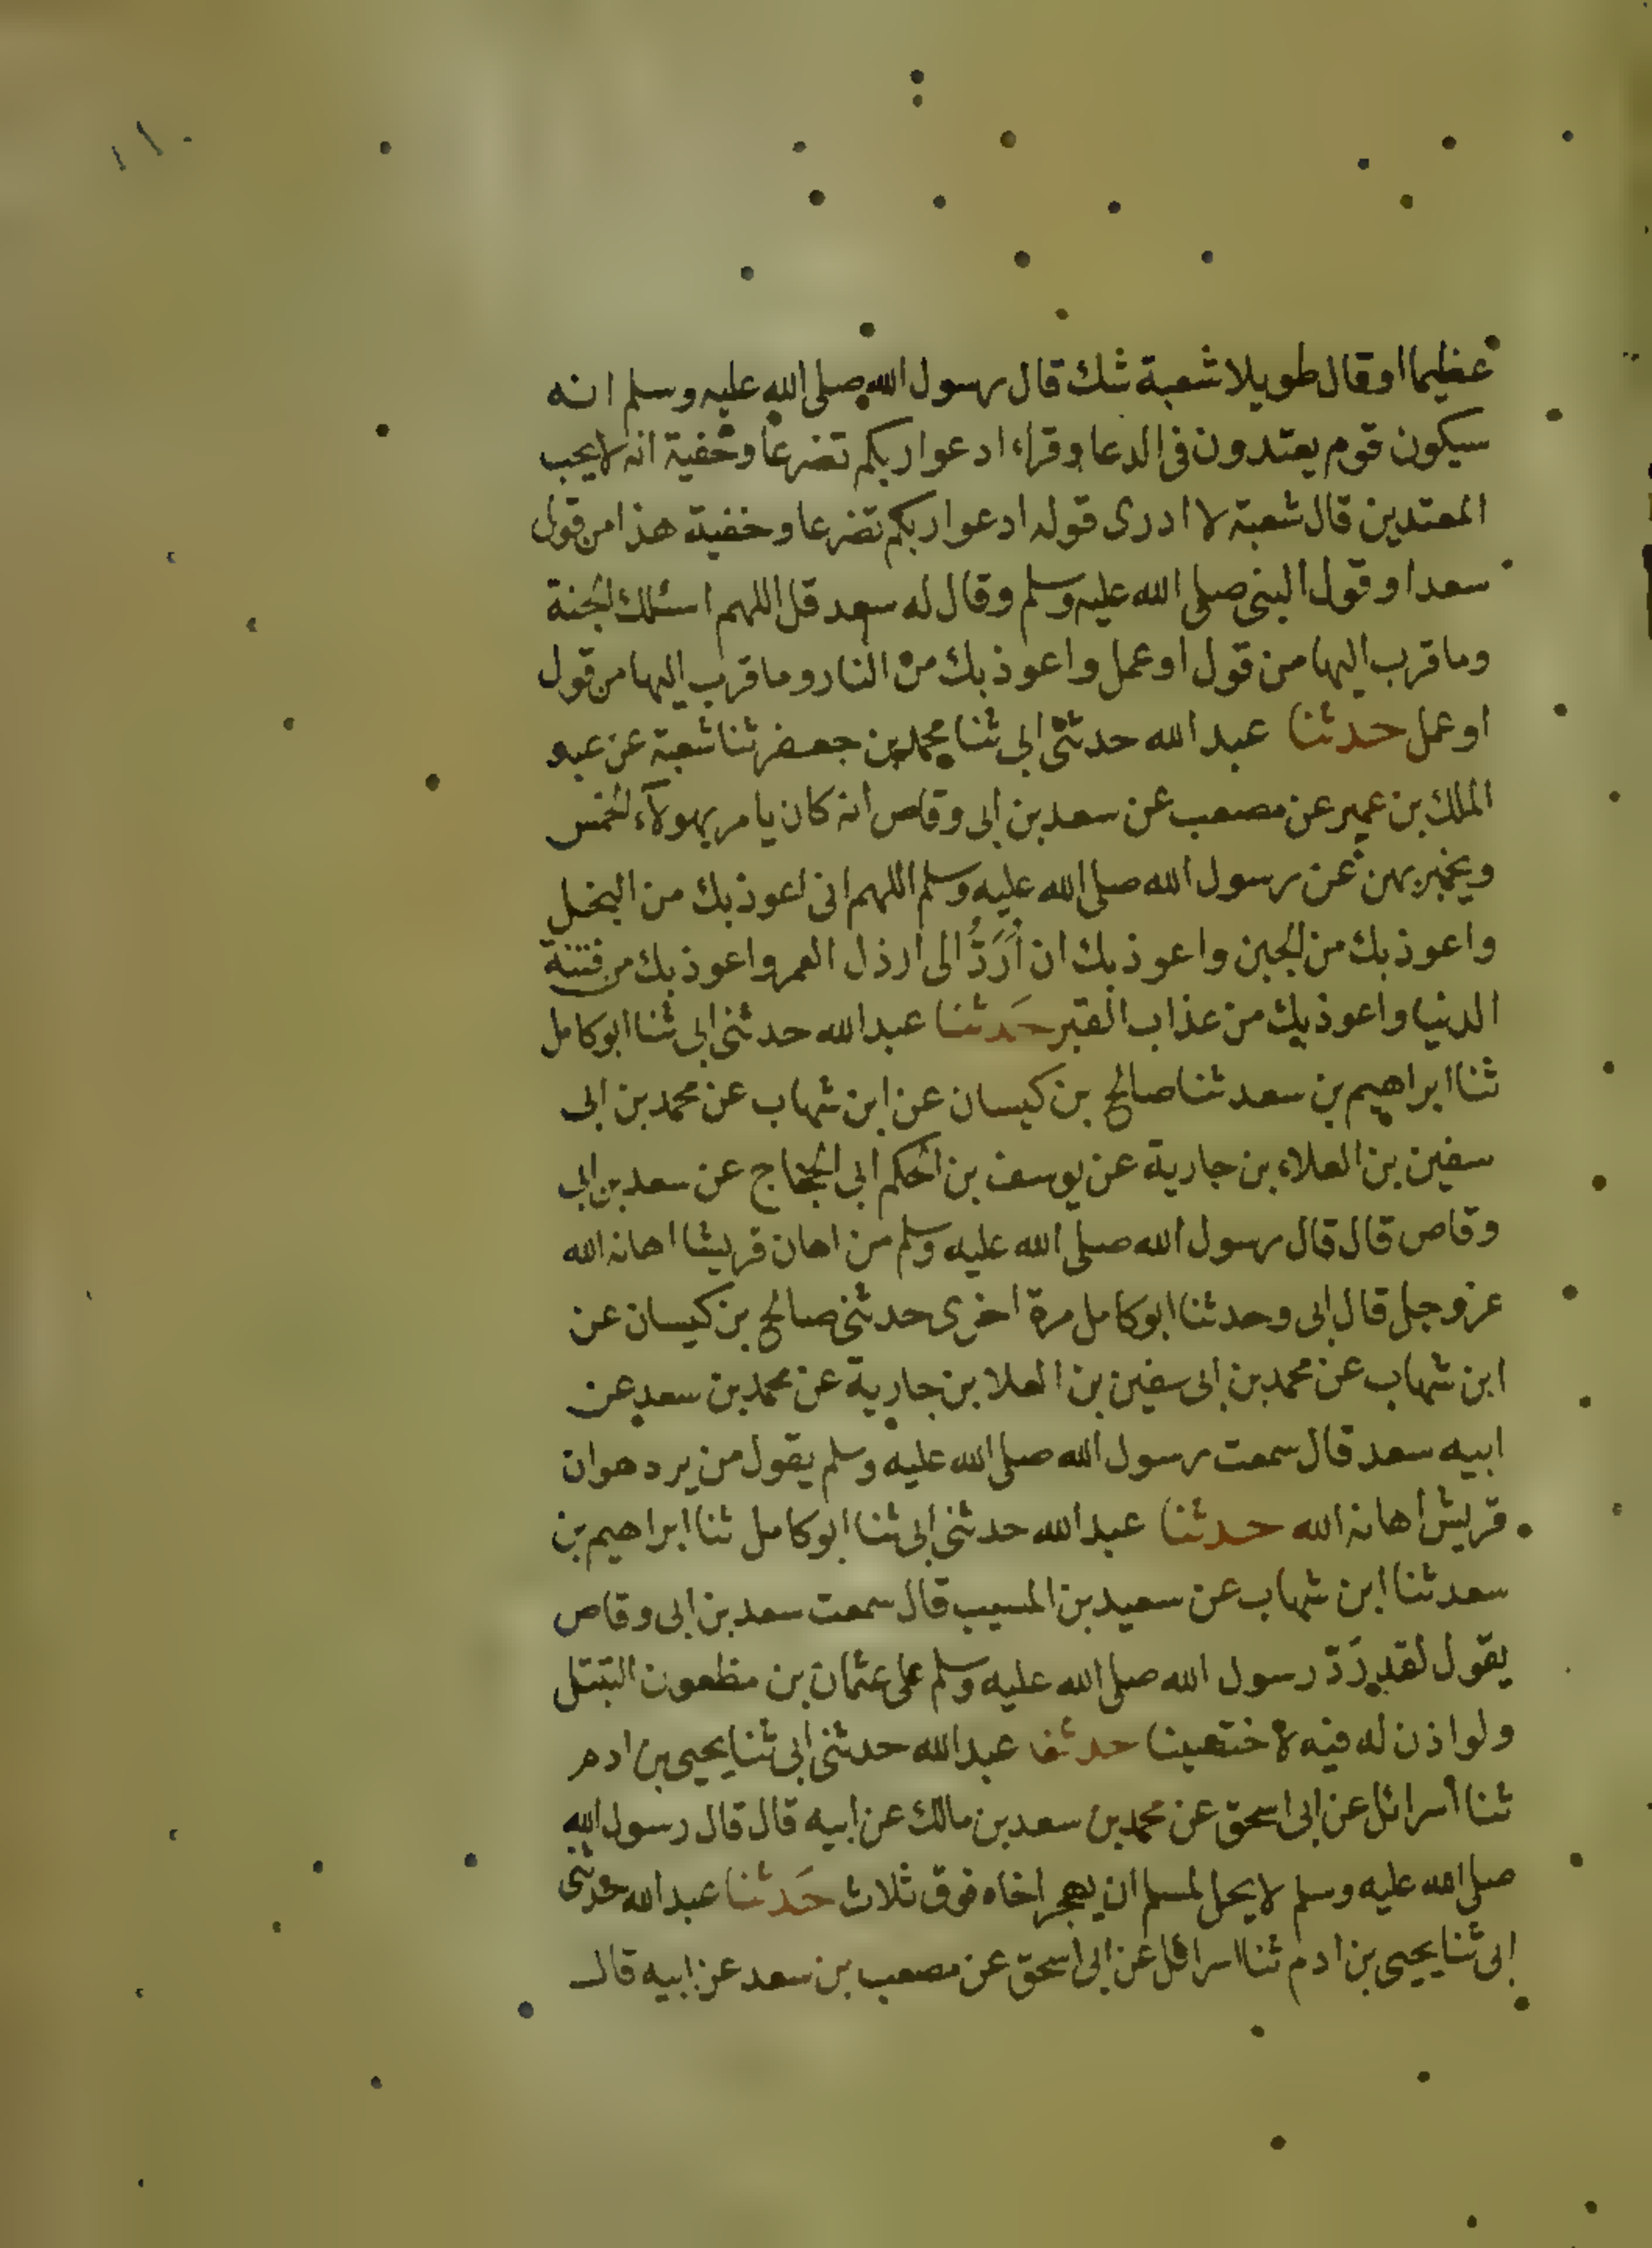 ١١٠
عظيما او قال طويلا شعبة شك قال رسول الله صلى الله عليه وسلم انه
سيكون قوم يعتدون فى الدعا وقراء ادعوا ربكم تضرعا وخفية انه لا يحب
المعتدين قال شعبة لا ادرى قوله ادعوا ربكم تضرعا وخفية هذا من قول
سعد او قول النبى صلى الله عليه وسلم وقال له سعد قل اللهم اسئلك الجنة
وما قرب اليها من قول او عمل واعوذ بك من النار وما قرب اليها من قول
او عمل حدثنا عبد الله حدثنى ابى ثنا محمد بن جعفر ثنا شعبة عن عبد
الملك بن عمير عن مصعب عن سعد بن ابى وقاص انه كان يامر بهولآء الخمس
ويخبر بهن عن رسول الله صلى الله عليه وسلم اللهم انى اعوذ بك من البخل
واعوذ بك من الجبن واعوذ بك ان أُرَدُّ الى ارذل العمر واعوذ بك من فتنة
الدنيا واعوذ بك من عذاب القبر حَدثنا عبد الله حدثنى ابى ثنا ابو كامل
ثنا ابراهيم بن سعد ثنا صالح بن كيسان عن ابن شهاب عن محمد بن ابى
سفين بن العلاء بن جارية عن يوسف بن الحكم ابى الحجاج عن سعد بن ابى
وقاص قال قال رسول الله صلى الله عليه وسلم من اهان قريشا اهانه الله
عز وجل قال ابى وحدثنا ابو كامل مرة اخرى حدثنى صالح بن كيسان عن
ابن شهاب عن محمد بن ابى سفين بن العلا بن جارية عن محمد بن سعد عن
ابيه سعد قال سمعت رسول الله صلى الله عليه وسلم يقول من يرد هوان
قريش اهانه الله حدثنا عبد الله حدثنى ابى ثنا ابو كامل ثنا ابراهيم بن
سعد ثنا ابن شهاب عن سعيد بن المسيب قال سمعت سعد بن ابى وقاص
يقول لقد رَدّ رسول الله صلى الله عليه وسلم على عثمان بن مظعون التبتل
ولو اذن له فيه لاختصينا حدثنا عبد الله حدثنى ابى ثنا يحيى بن ادم
ثنا اسرائل عن ابى اسحق عن محمد بن سعد بن مالك عن ابيه قال قال رسول الله
صلى الله عليه وسلم لا يحل لمسلم ان يهجر اخاه فوق ثلاث حَدثنا عبد الله حدثنى
ابى ثنا يحيى بن ادم ثنا اسرائل عن ابى اسحق عن مصعب بن سعد عن ابيه قال